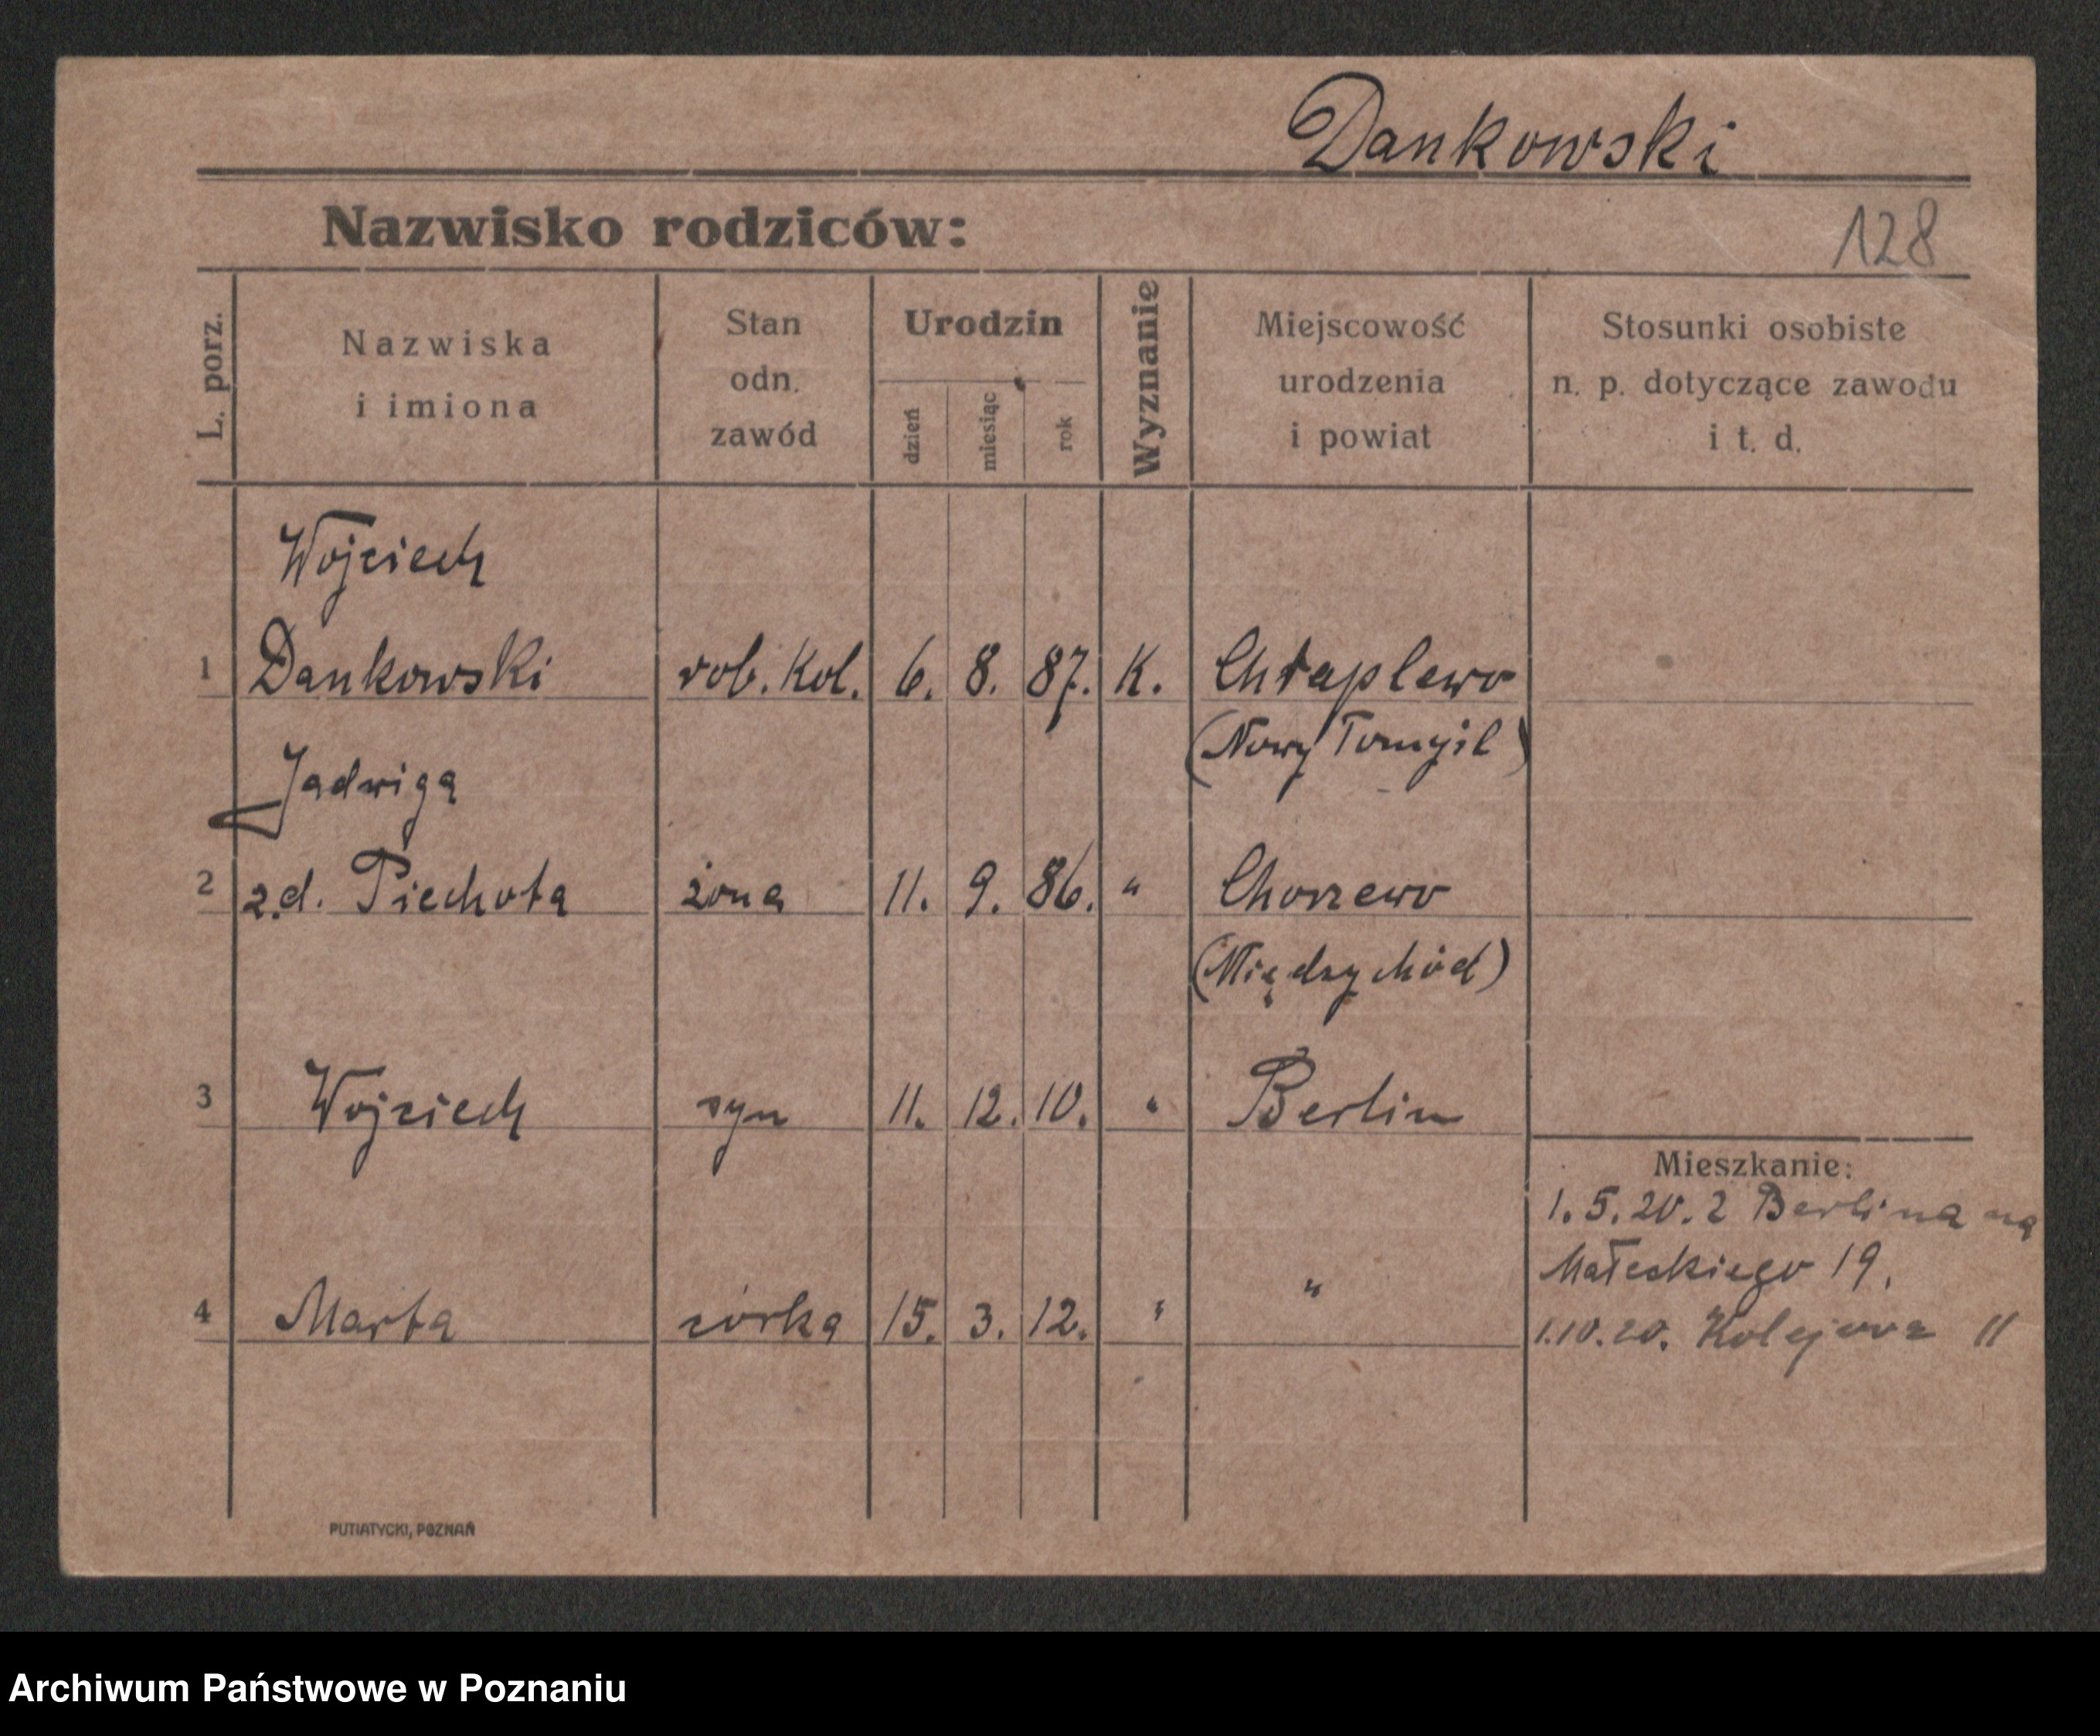 Dankowski
Nazwisko rodziców:
128
L. porz.
Nazwiska
i imiona
Stan
odn.
zawód
Urodzin
dzień
miesiąc
rok
Wyznanie
Miejscowość
urodzenia
i powiat
Stosunki osobiste
n. p. dotyczące zawodu
i t. d.
Wojciech
1 Dankowski rob. kol. 6. 8. 87. K. Chraplewo
(Nowy Tomyśl)
Jadwiga
2 z.d. Piechota żona 11. 9. 86. " Chorzewo
(Międzychód)
3 Wojciech syn 11. 12. 10. " Berlin
Mieszkanie:
1.5.20. z Berlina na
Małeckiego 19.
4 Marta córka 15. 3. 12. " "
1.10.20. Kolejowa 11
PUTIATYCKI, POZNAŃ
Archiwum Państwowe w Poznaniu